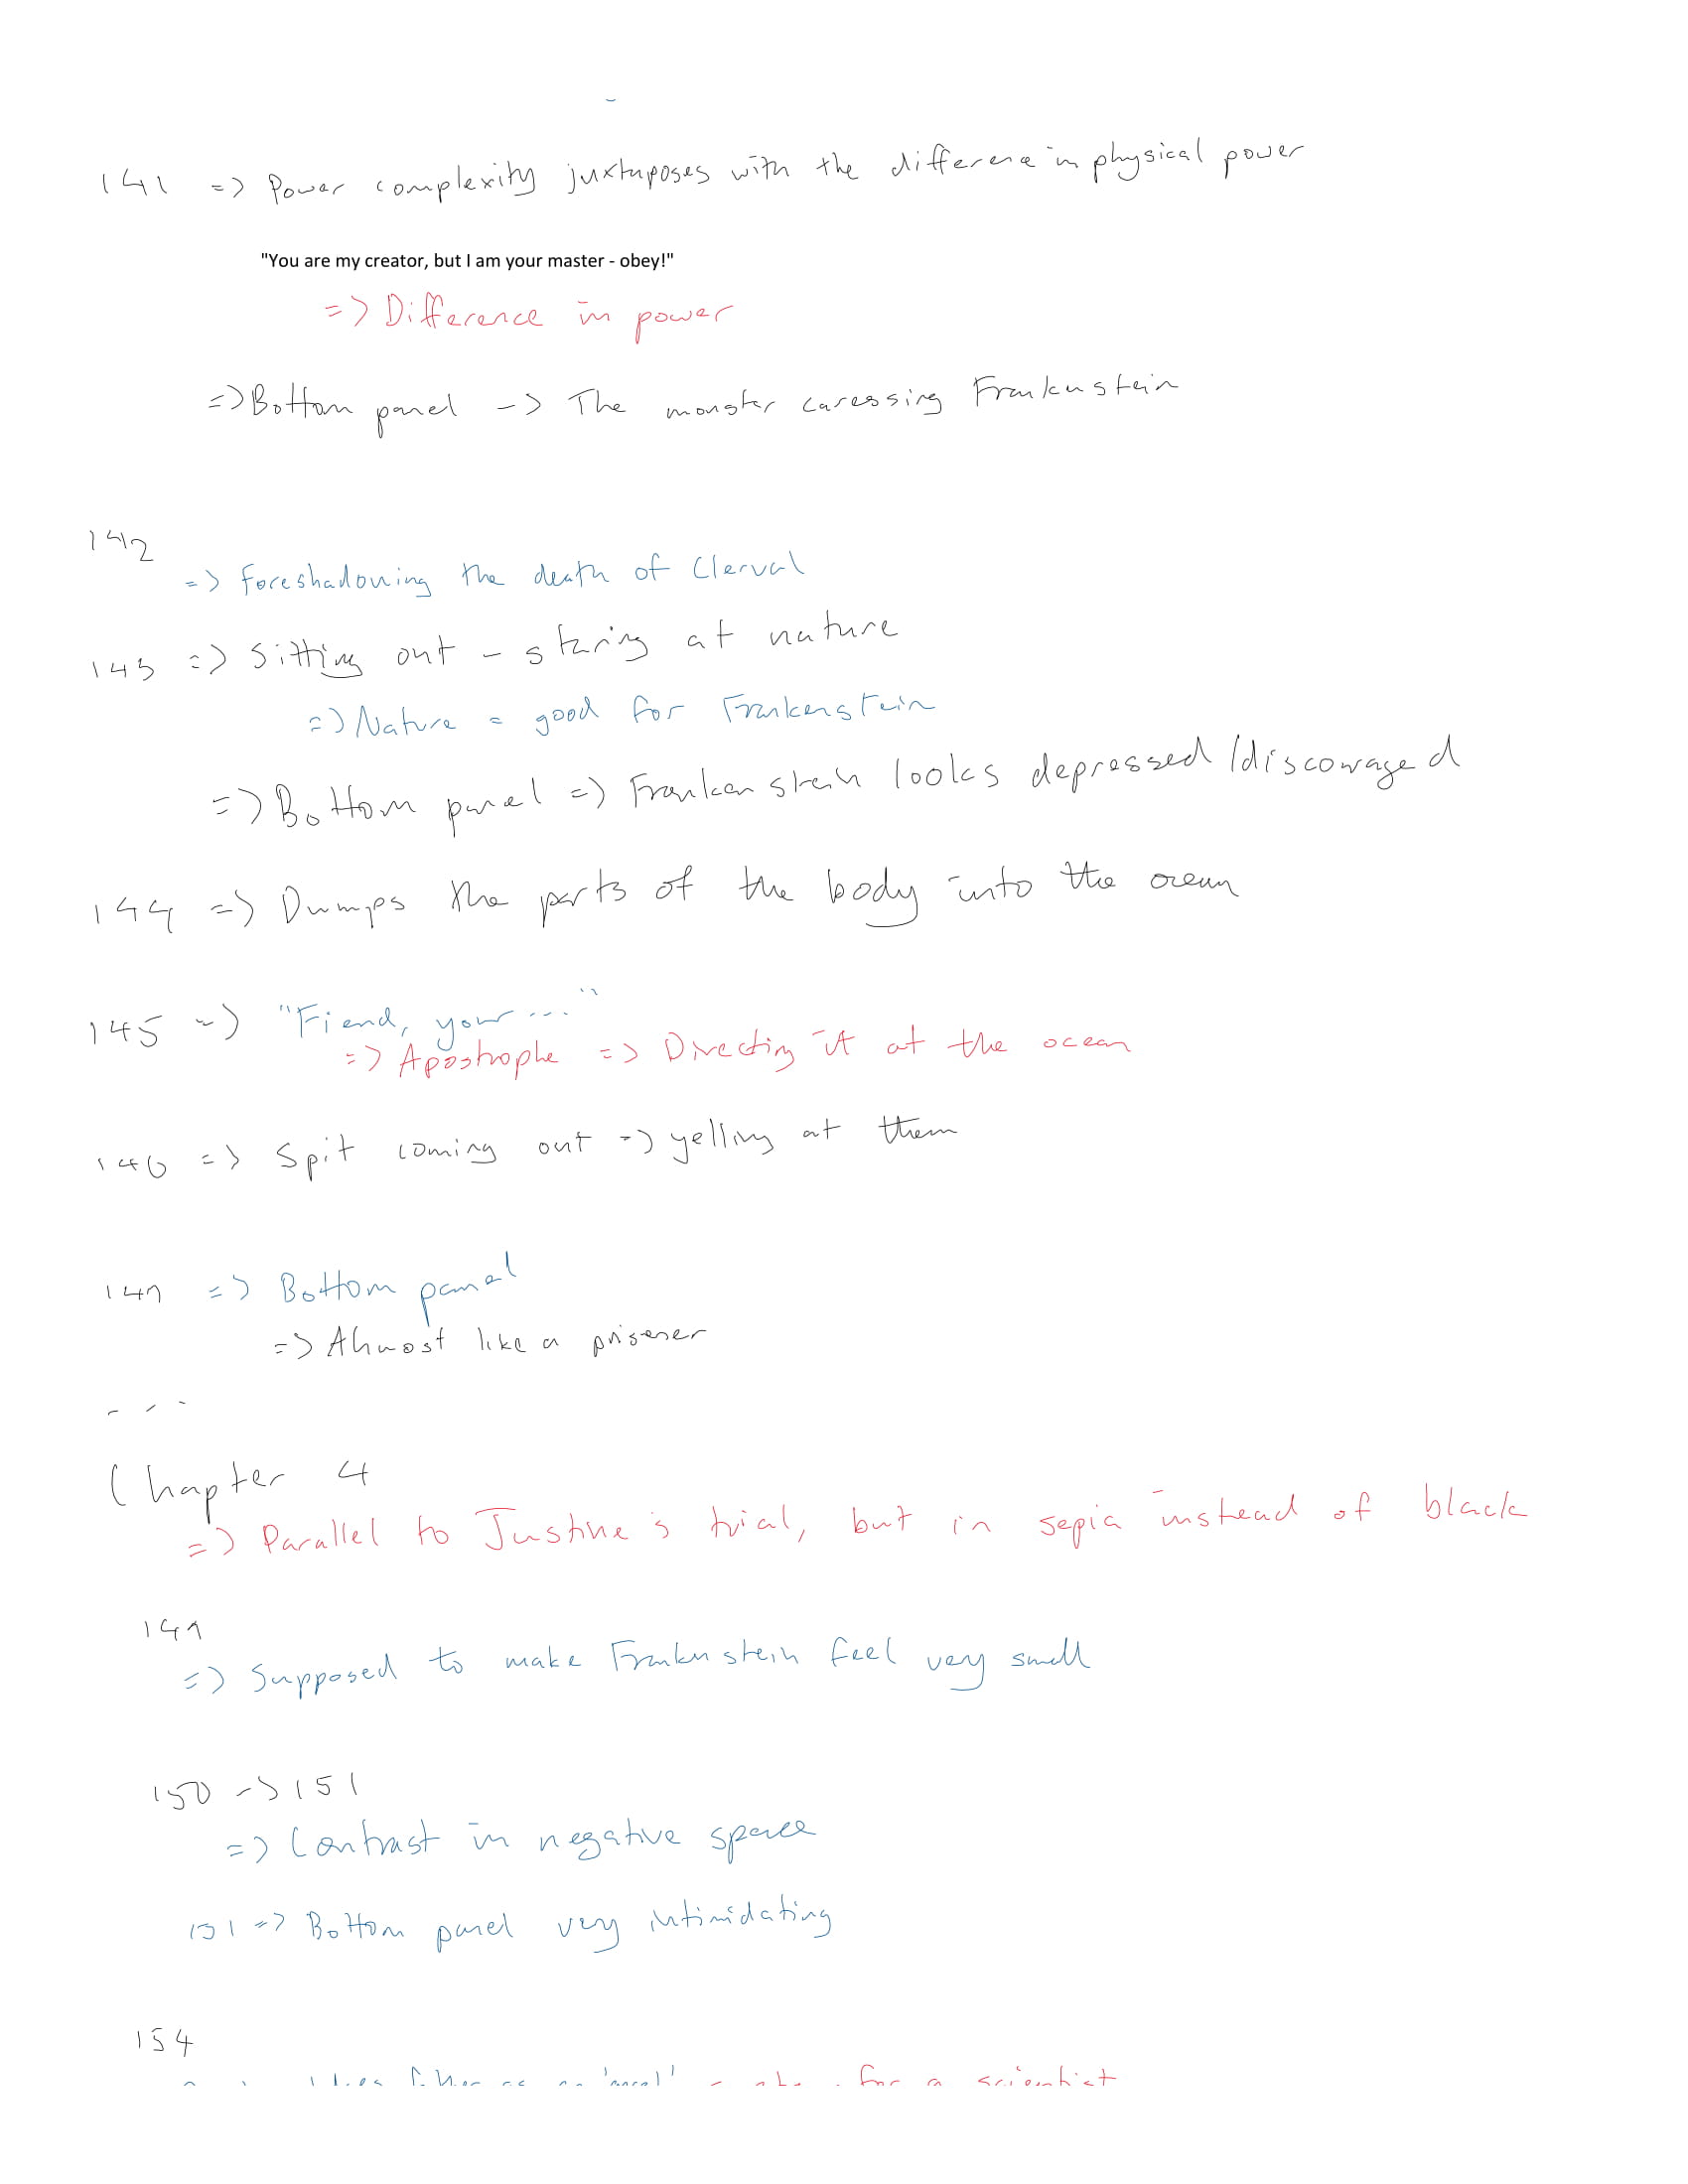 141 => Power complexity juxtaposes with the difference in physical power
"You are my creator, but I am your master - obey!"
=> Difference in power
=> Bottom panel -> The monster caressing Frankenstein
142
=> Foreshadowing the death of Clerval
143 => Sitting out - staring at nature
=> Nature = good for Frankenstein
=> Bottom panel => Frankenstein looks depressed/discouraged
144 => Dumps the parts of the body into the ocean
145 => "Fiend, your ..."
=> Apostrophe => Directing it at the ocean
146 => Spit coming out => yelling at them
147 => Bottom panel
=> Almost like a prisoner
- - -
Chapter 4
=> Parallel to Justine's trial, but in sepia instead of black
149
=> Supposed to make Frankenstein feel very small
150 -> 151
=> Contrast in negative space
151 => Bottom panel very intimidating
154
for a scientist